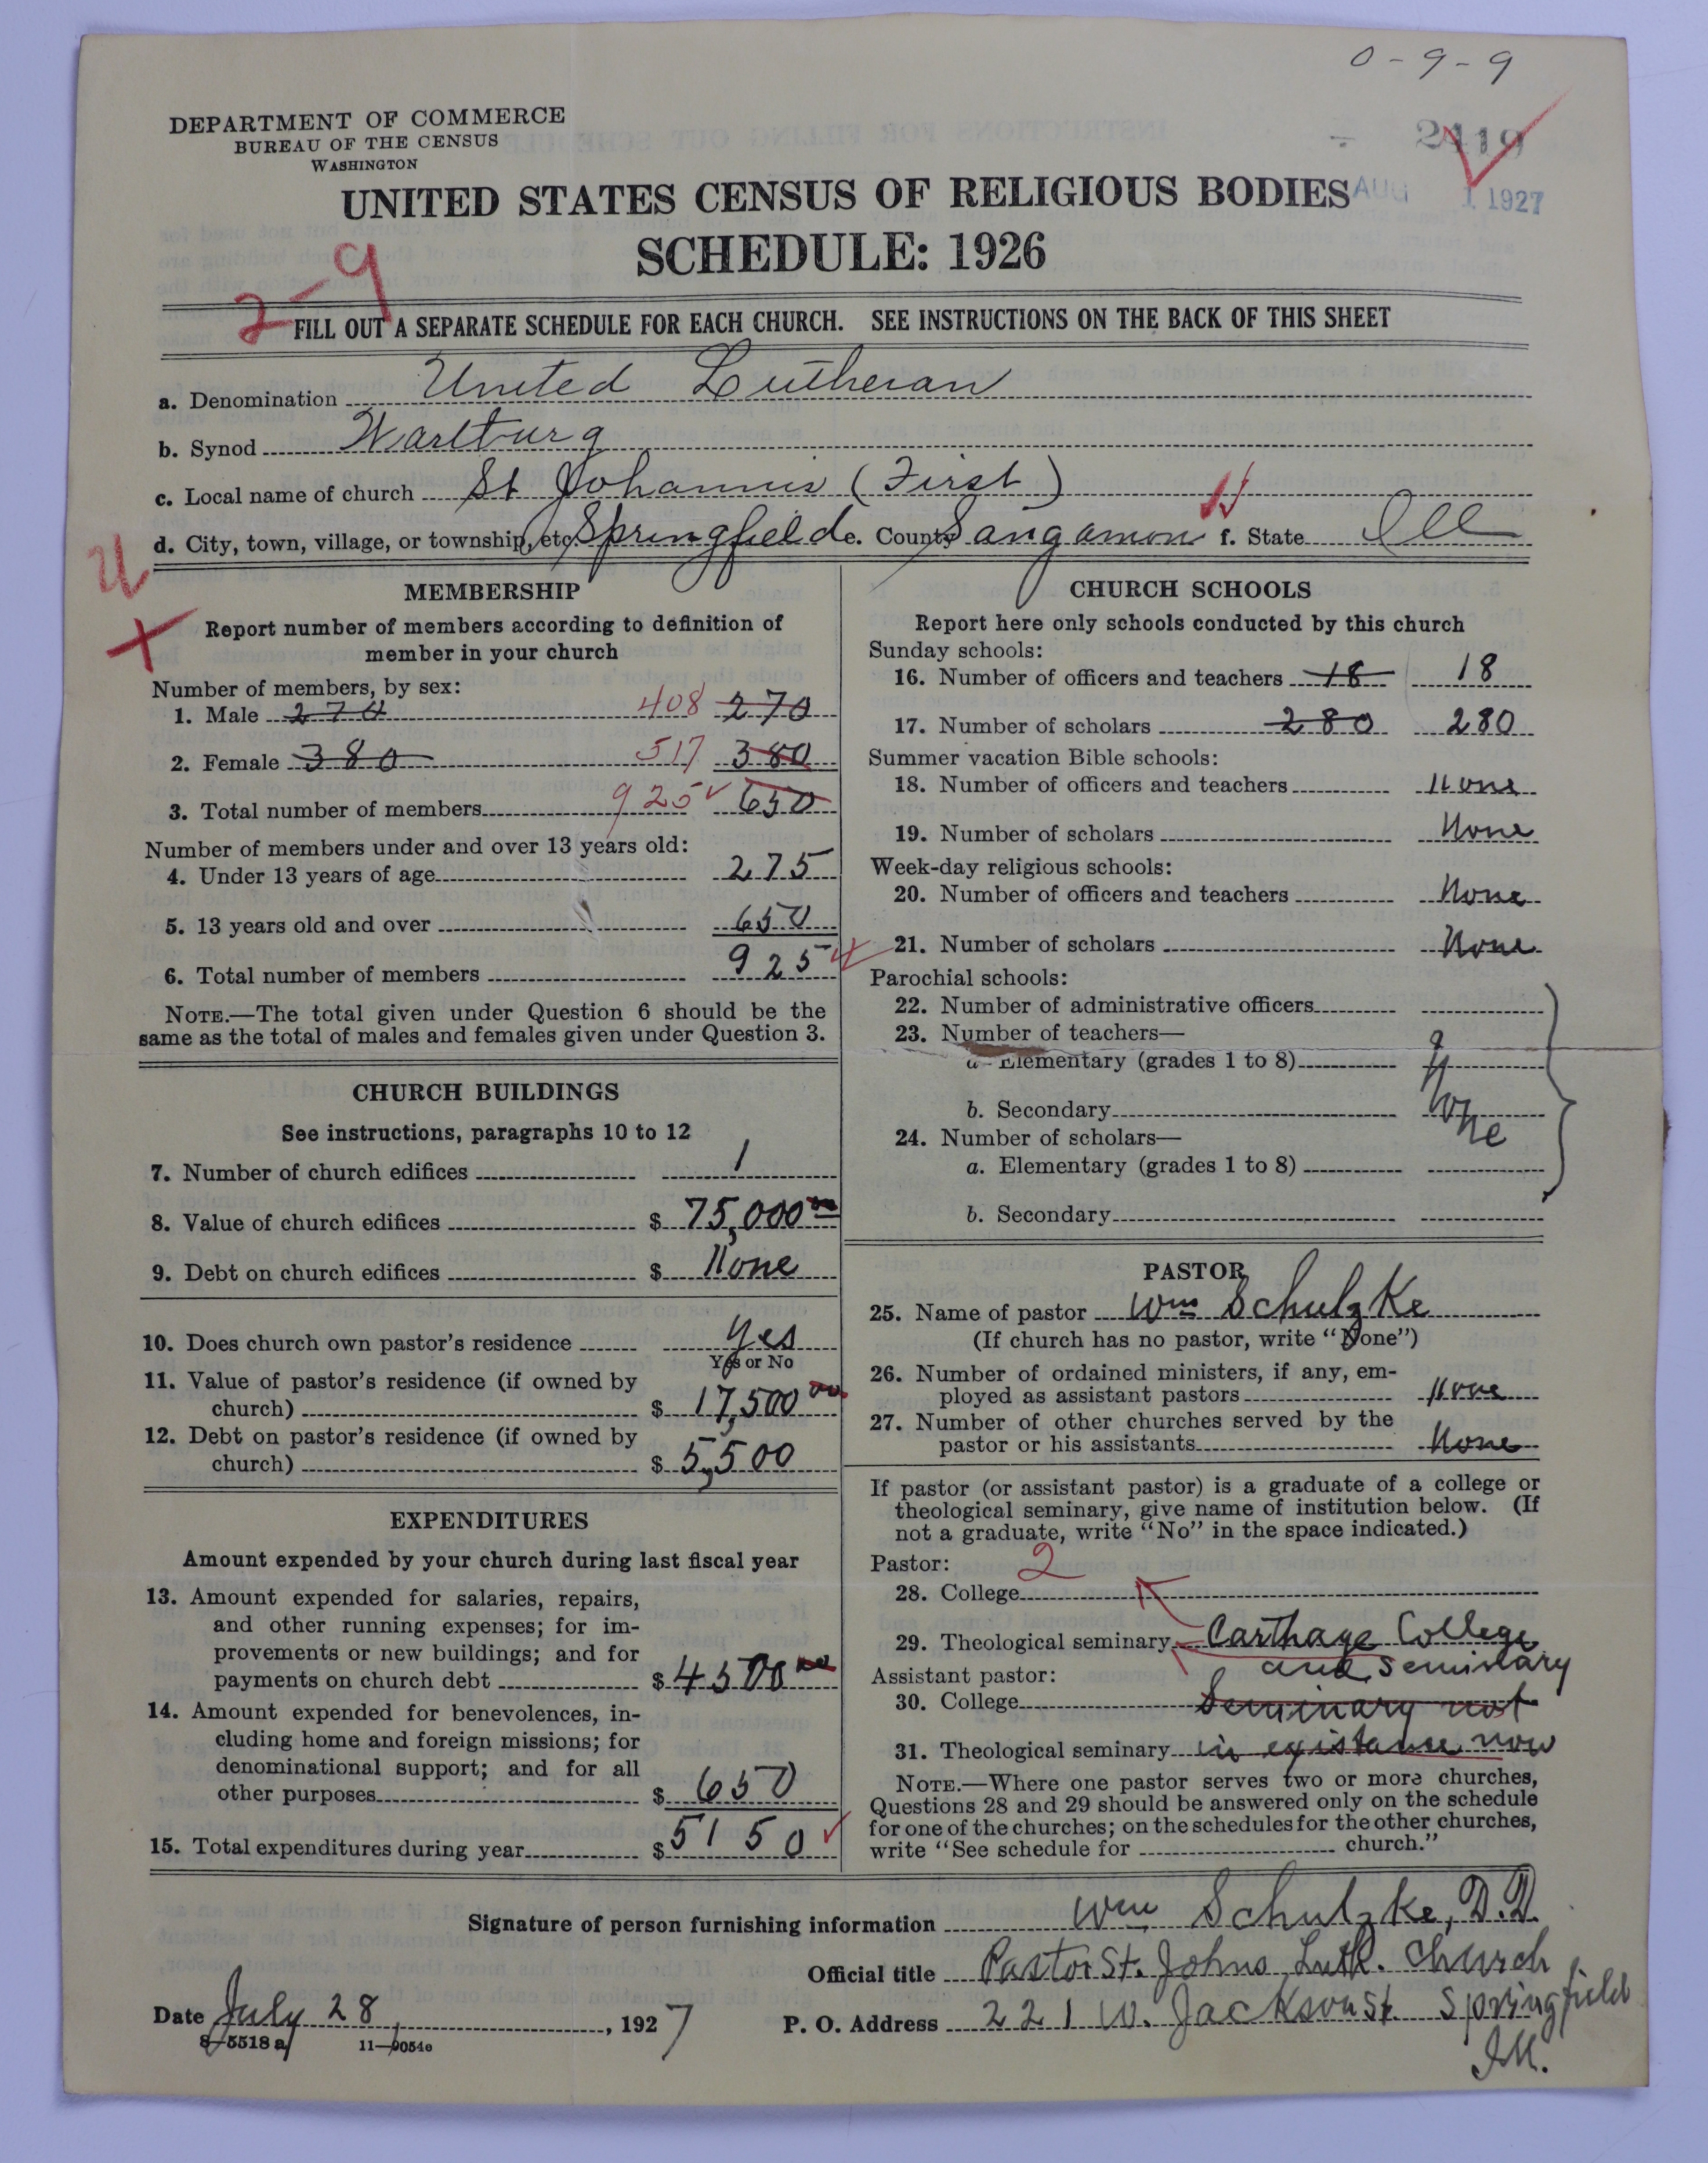 0-9-9
DEPARTMENT OF COMMERCE
BUREAU OF THE CENSUS
WASHINGTON
2419
AUG 1 1927
UNITED STATES CENSUS OF RELIGIOUS BODIES
SCHEDULE: 1926
2-9
FILL OUT A SEPARATE SCHEDULE FOR EACH CHURCH. SEE INSTRUCTIONS ON THE BACK OF THIS SHEET
a. Denomination United Lutheran
b. Synod Wartburg
c. Local name of church St Johannis (First)
d. City, town, village, or township, etc. Springfield e. County Sangamon f. State Ill
MEMBERSHIP
Report number of members according to definition of
member in your church
Number of members, by sex:
1. Male 270 408 270
2. Female 380 517 380
3. Total number of members 925 650
Number of members under and over 13 years old:
4. Under 13 years of age 275
5. 13 years old and over 650
6. Total number of members 925
NOTE.—The total given under Question 6 should be the
same as the total of males and females given under Question 3.
CHURCH BUILDINGS
See instructions, paragraphs 10 to 12
7. Number of church edifices 1
8. Value of church edifices $ 75,000 00
9. Debt on church edifices $ None
10. Does church own pastor's residence Yes
Yes or No
11. Value of pastor's residence (if owned by
church) $ 17,500 00
12. Debt on pastor's residence (if owned by
church) $ 5,500
EXPENDITURES
Amount expended by your church during last fiscal year
13. Amount expended for salaries, repairs,
and other running expenses; for im-
provements or new buildings; and for
payments on church debt $ 4500 00
14. Amount expended for benevolences, in-
cluding home and foreign missions; for
denominational support; and for all
other purposes $ 650
15. Total expenditures during year $ 5150
CHURCH SCHOOLS
Report here only schools conducted by this church
Sunday schools:
16. Number of officers and teachers 18 18
17. Number of scholars 280 280
Summer vacation Bible schools:
18. Number of officers and teachers None
19. Number of scholars None
Week-day religious schools:
20. Number of officers and teachers None
21. Number of scholars None
Parochial schools:
22. Number of administrative officers
23. Number of teachers—
a. Elementary (grades 1 to 8)
b. Secondary None
24. Number of scholars—
a. Elementary (grades 1 to 8)
b. Secondary
PASTOR
25. Name of pastor Wm Schulzke
(If church has no pastor, write "None")
26. Number of ordained ministers, if any, em-
ployed as assistant pastors None
27. Number of other churches served by the
pastor or his assistants None
If pastor (or assistant pastor) is a graduate of a college or
theological seminary, give name of institution below. (If
not a graduate, write "No" in the space indicated.)
Pastor: 2
28. College
29. Theological seminary Carthage College
and Seminary
Assistant pastor:
30. College Seminary not
31. Theological seminary in existance now
NOTE.—Where one pastor serves two or more churches,
Questions 28 and 29 should be answered only on the schedule
for one of the churches; on the schedules for the other churches,
write "See schedule for church."
Signature of person furnishing information Wm Schulzke, D.D.
Official title Pastor St. Johns Luth. Church
Date July 28, 1927 P. O. Address 221 W. Jackson St. Springfield
Ill.
8-5518 a 11-9054c